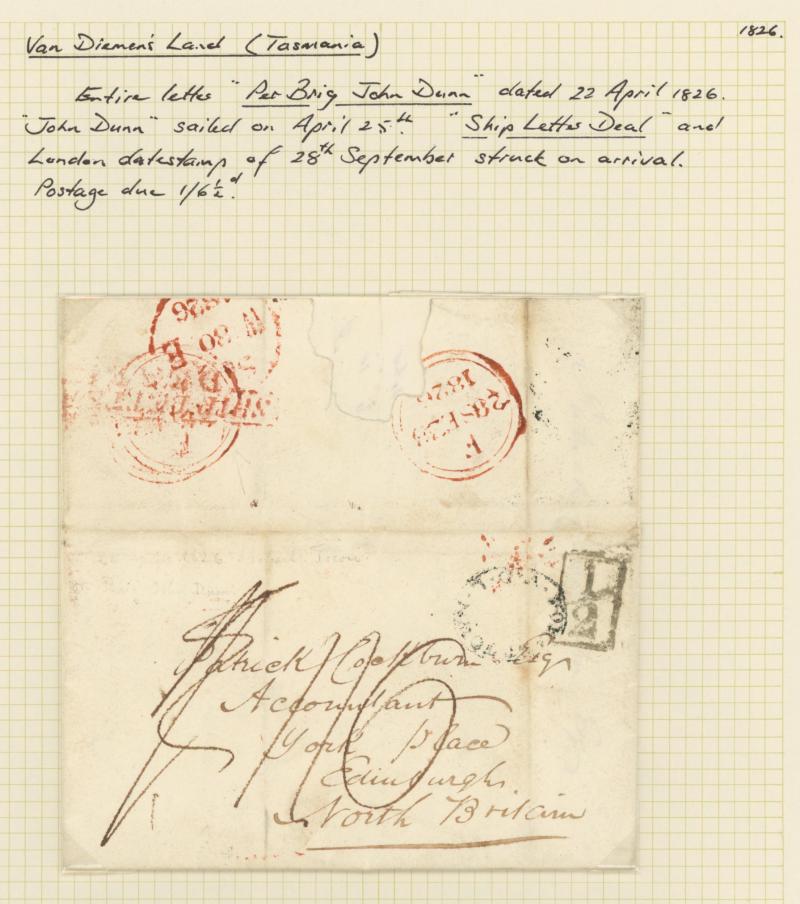 1826.
Van Diemen's Land (Tasmania)
Entire letter "Per Brig John Dunn" dated 22 April 1826.
"John Dunn" sailed on April 25th. "Ship Letter Deal" and
London datestamp of 28th September struck on arrival.
Postage due 1/6½d.
1826
30
SHIP LETTER
F
28 SE 28
1826
1/2
Patrick Cockburn Esqr
Accountant
York Place
Edinburgh.
North Britain